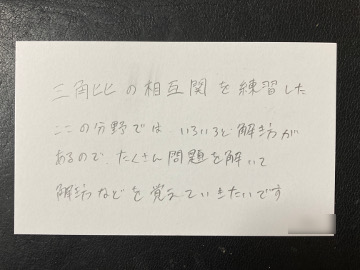 三角比の相互関を練習した
ここの分野では いろいろと解き方が
あるので、たくさん問題を解いて
解き方などを覚えていきたいです